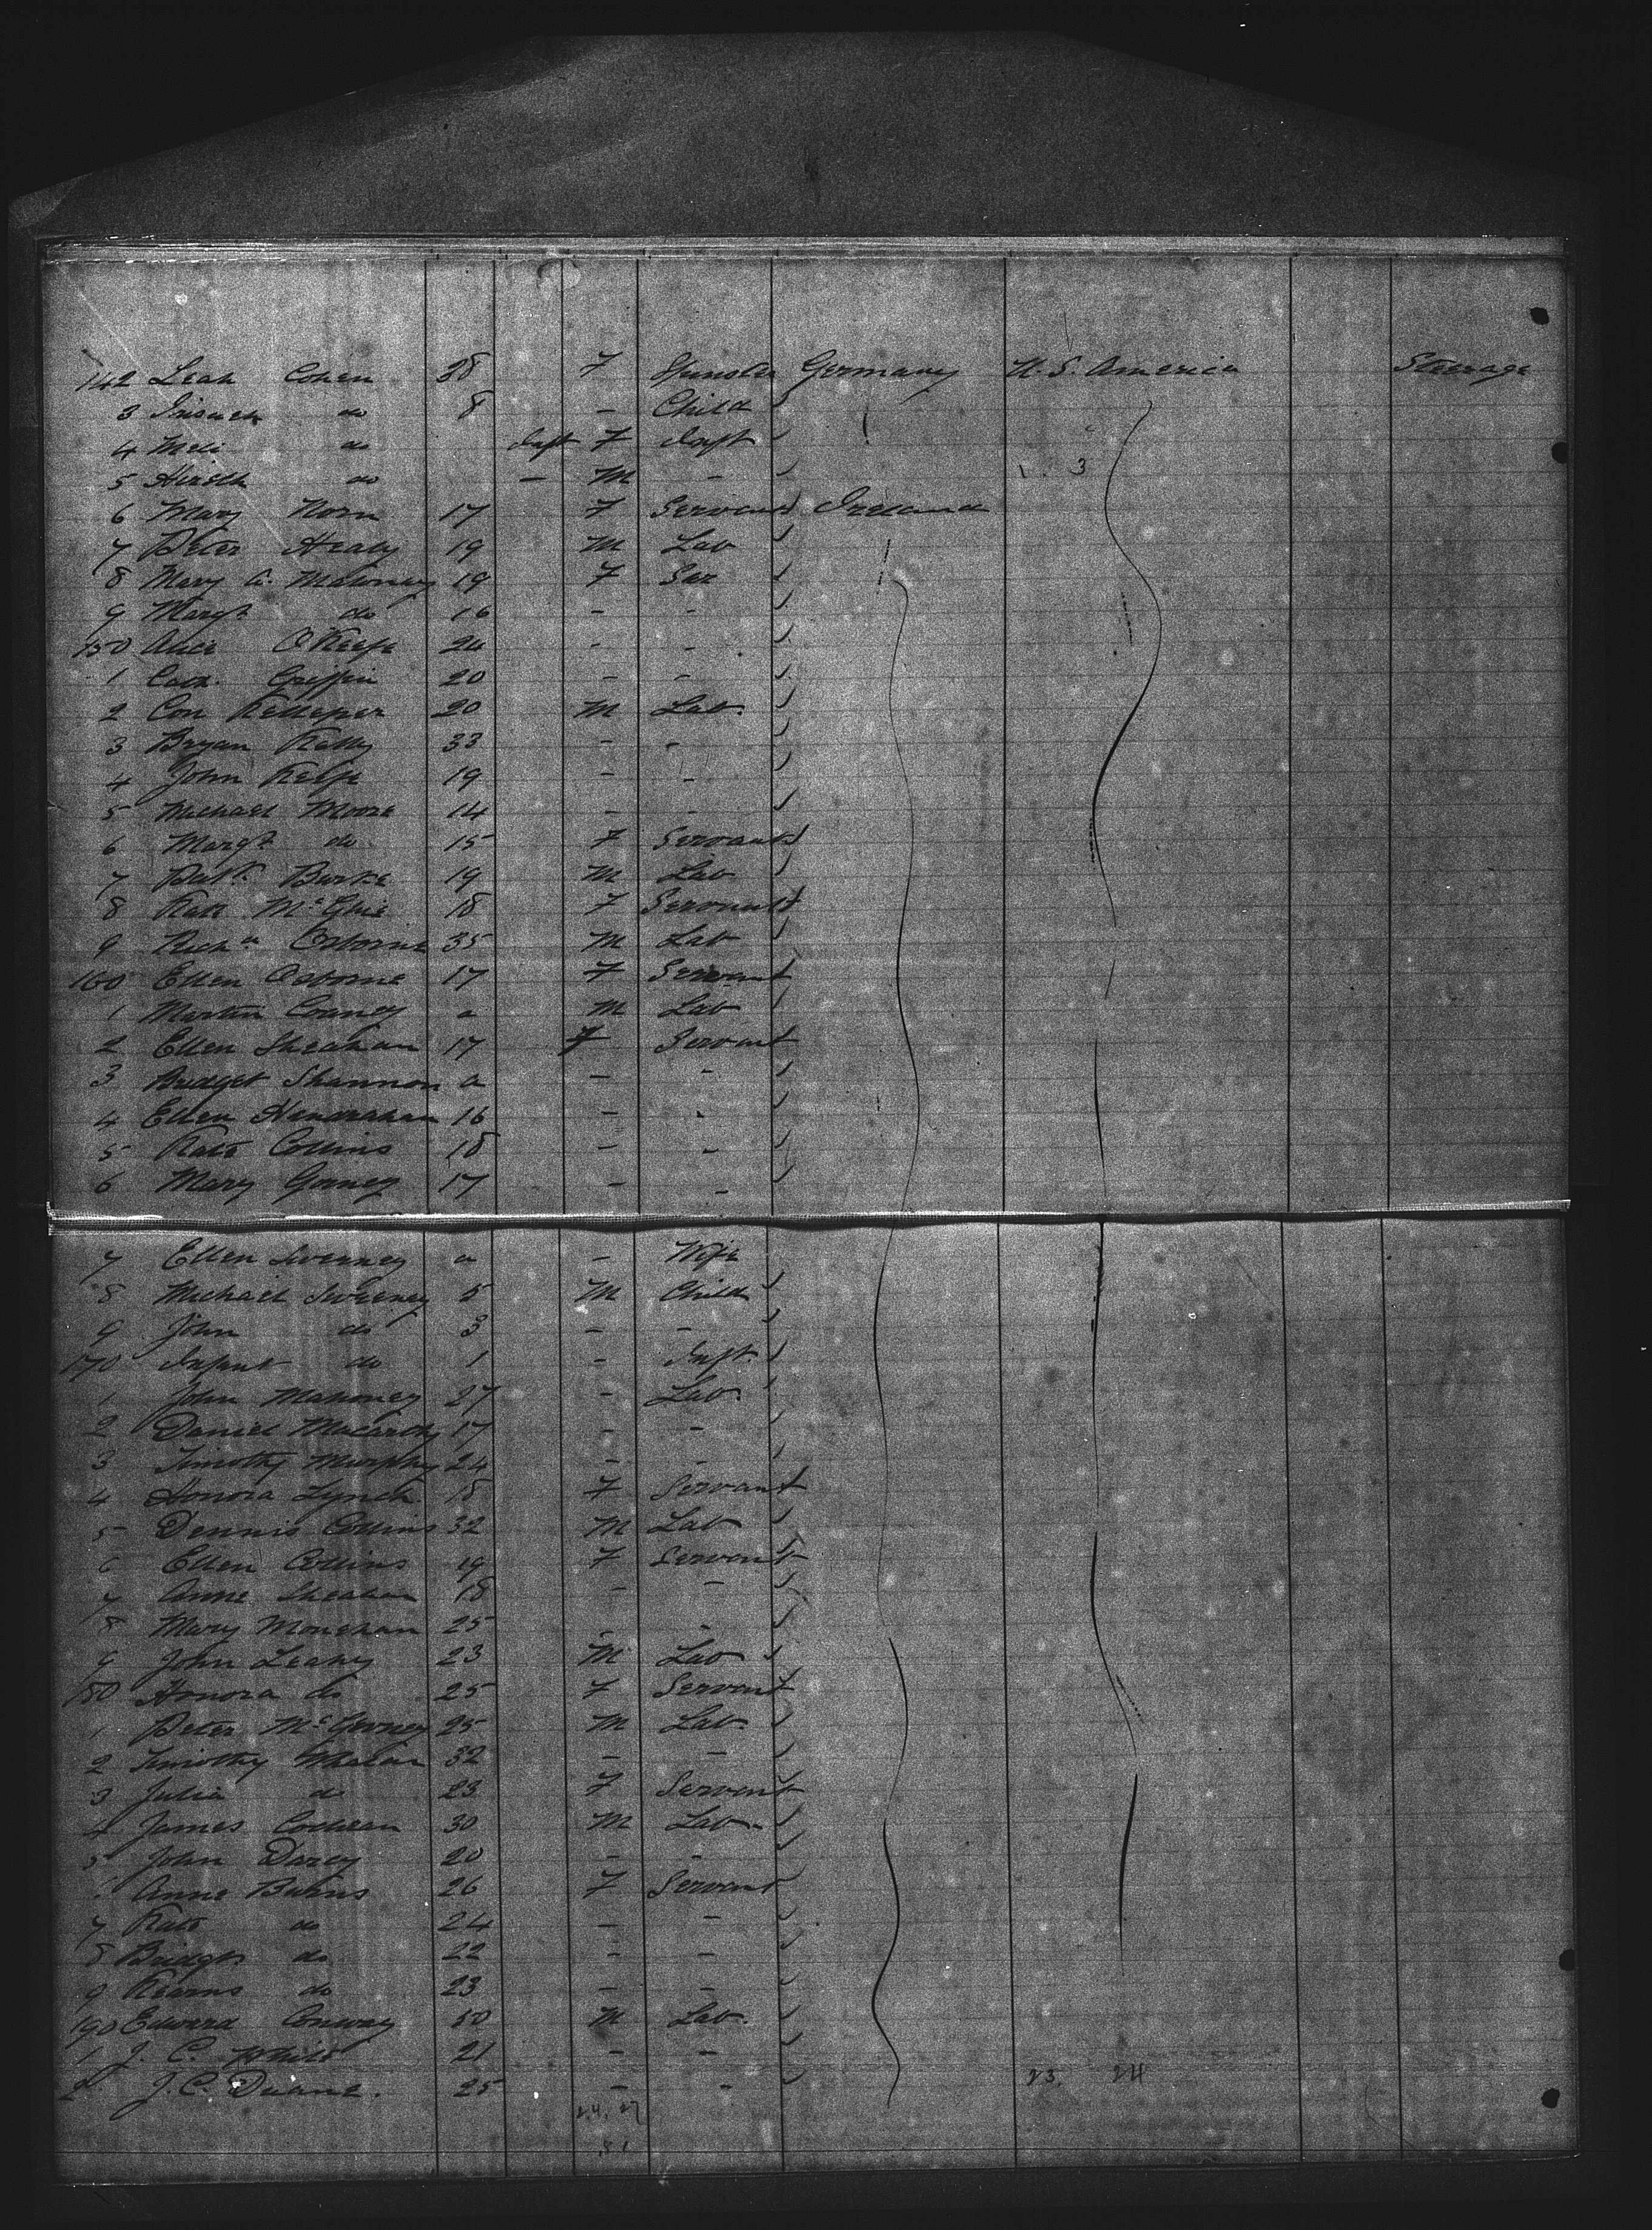 142 Leah Cohen 28 F Spinster Germany U.S. America Steerage
3 do 8 - Child
4 Meli do Inft F Inft
5 Hirsch do - M - 1. 3
6 Mary Horn 17 F Servant Ireland
7 Peter Healy 19 M Lab
8 Mary A. Mahoney 19 F Ser
9 Margt do 16 - -
150 Alice O'Keefe 24 - -
1 Cath. Griffin 20 - -
2 Con 20 M Lab.
3 Bryan Kelly 33 - -
4 John Keefe 19 - -
5 Michael Moore 14 - -
6 Margt do 15 F Servant
7 Patk Burke 19 M Lab
8 Kate McGhie 18 F Servant
9 Richd Osborne 35 M Lab
160 Ellen Osborne 17 F Servant
1 Martin a M Lab
2 Ellen Sheahan 17 F Servant
3 Bridget Shannon a - -
4 Ellen Hanrahan 16 - -
5 Kate Collins 18 - -
6 Mary 17 - -
7 Ellen Sweeney a - Wife
8 Michael Sweeney 5 M Child
9 John do 3 - -
170 Infant do 1 - Inft.
1 John Mahoney 27 - Lab.
2 Daniel Macarthy 17 - -
3 Timothy Murphy 24 - -
4 Honora Lynch 18 F Servant
5 Dennis Collins 32 M Lab
6 Ellen Collins 19 F Servant
7 Anne Sheahan 18 - -
8 Mary Monahan 25 - -
9 John Leahy 23 M Lab
180 Honora do 25 F Servant
1 Peter 25 M Lab.
2 Timothy Whalen 32 - -
3 Julia do 23 F Servant
4 James Cochran 30 M Lab.
5 John Darcy 20 - -
Anne Burns 26 F Servant
7 Kate do 24 - -
8 Bridget do 22 - -
9 Kearns do 23 - -
190 Edward Conway 50 M Lab.
1 J. C. White 21 - -
2 J. C. Duane. 25 - - 23. 24
24. 27